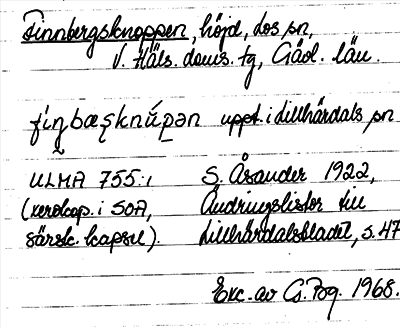 Finnbergsknoppen, höjd, dos. sn,
V. Häls. doms. tg, Gävl. län.
uppt. i Lillhärdals sn
ULMA 755:1 S. Åsander 1922,
(xerokop. i SOA, Ändringslistor till
särsk. kapsel). Lillhärdalsbladet, s. 47
Exc. av CS. Pog. 1968.